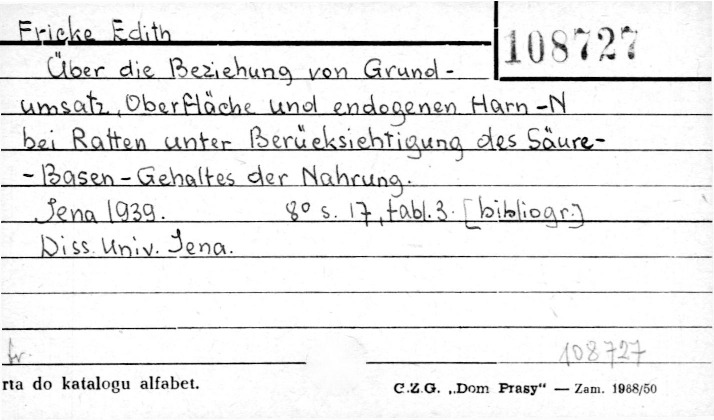 Fricke Edith
108727
Über die Beziehung von Grund-
umsatz, Oberfläche und endogenen Harn-N
bei Ratten unter Berücksichtigung des Säure-
-Basen-Gehaltes der Nahrung.
Jena 1939. 8° s. 17, tabl. 3. [bibliogr.]
Diss. Univ. Jena.
fr. 108727
rta do katalogu alfabet. C.Z.G. „Dom Prasy“ — Zam. 1968/50